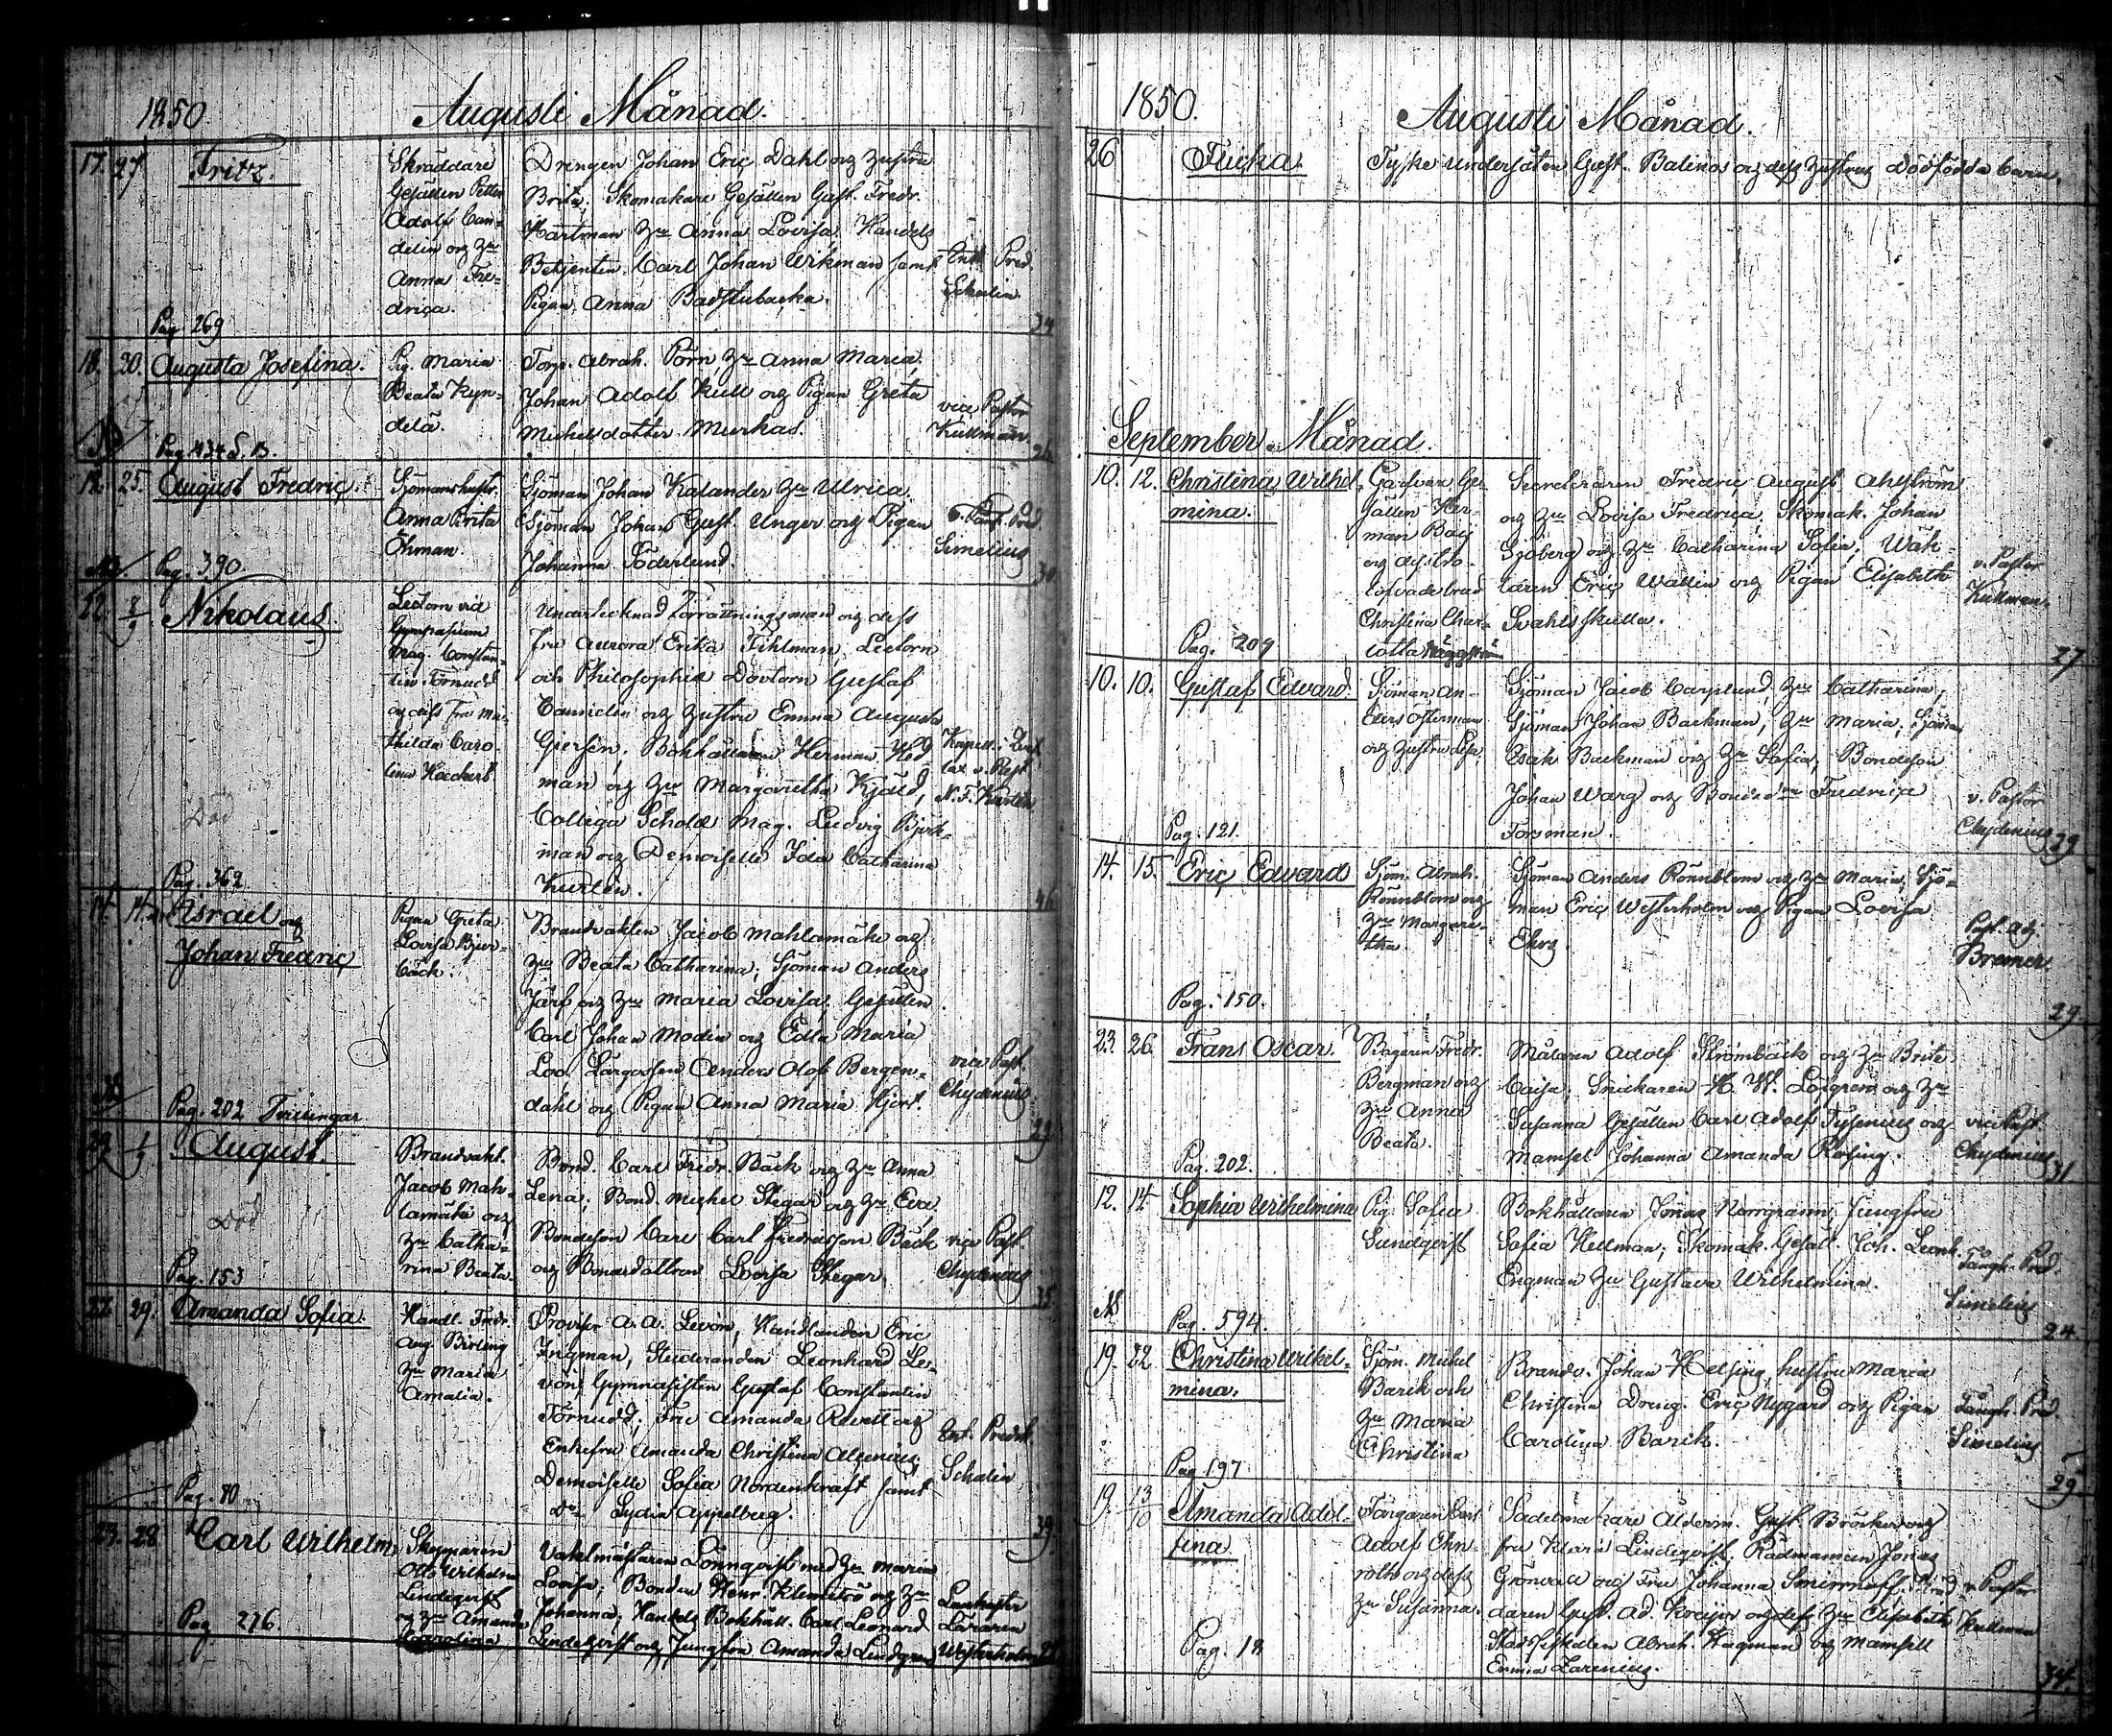 1850
Augusti Månad.
17. 27. Fritz.
Skräddare
Gesällen Petter
Adolf Can-
delin och Hu
Anna Fre-
drica.
Drengen Johan Eric Dahl och hustru
Brita, Skomakare Gesällen Gust. Fredr.
Hartman Hu Anna Lovisa. Handels
Betjenten Carl Johan Wikman samt
Pigan Anna Badstubacka.
Pred.
Schalin
Pag. 269
34
18. 20. Augusta Josefina.
Pig. Maria
Beata Kyn-
delä.
Torp. Abrah. Pörn, Hu Anna Maria,
Johan Adolf Kull och Pigan Greta
Michelsdotter Murkas.
vice Pastor
Kullman.
Pag. 434 L. B.
26
25. August Fredric.
Sjömanshustr.
Anna Brita
Öhman.
Sjöman Johan Kalander Hu Ulrica.
Sjöman Johan Gust. Unger och Pigan
Johanna Söderlund.
Simelius
Pag. 390
30
22. 8/9 Nikolaus.
Lectorn vid
Gymnasium
Mag. Constan-
tin Törnudd
och dess Fru Ma-
thilda Caro-
lina Hæckert
Undertecknad Förrättningsman och dess
Fru Aurora Erika Fihlman, Lectorn
och Philosophiæ Doctorn Gustaf
och hustru Emma Augusta
Giersén, Bokhållaren Herman Hed-
man och Hu Margaretha Kjäld,
Collega Scholæ Mag. Ludvig Björk-
man och Demoiselle Ida Catharina
Kurtén.
Kapell. i
v. Past.
N. F. Kurtén
Död
Pag. 362
46
14. 14. Israel och
Johan Fredric
Pigan Greta
Lovisa Bjur-
bäck.
Brandvakten Jacob Mahlamäki och
Hu Beata Catharina, Sjöman Anders
Järf och Hu Maria Lovisa, Gesällen
Carl Johan Modin och Edla Maria
Loo, Anders Olof Bergen-
dahl och Pigan Anna Maria Hjort.
vice Past.
Chydenius
Pag. 202 Tvillingar
29. 1/9 August.
Brandvakt.
Jacob Mah-
lamäki och
Hu Catha-
rina Beata.
Bond. Carl Fredr. Bäck och Hu Anna
Lena, Bond. Michel Stegar och Hu Eva,
Bondeson Carl Carl Fredricsson Bäck
och Bondedottren Lovisa Stegar.
vice Past.
Chydenius
Död
Pag. 153
35
27. 29. Amanda Sofia.
Handl. Fredr.
Aug. Birling
Hu Maria
Amalia.
Provisor A. A. Levón, Handlanden Eric
Ingman, Studeranden Leonhard Le-
vón, Gymnasisten Gustaf Constantin
Törnudd, Fru Amanda Revell och
Enkefru Amanda Christina
Demoiselle Sofia Nordenkraft samt
Do Lydia Appelberg.
Ext. Predik.
Schalin
Pag. 80
39
23. 28 Carl Wilhelm.
Otto Wilhelm
Lindeqvist
och Hu Amanda
Carolina
Vaktmästaren Lönnqvist med Hu Maria
Lovisa, Bonden Henr. Klemetsö och Hu
Johanna, Handels Bokhåll. Carl Leonard
Lindeqvist och Jungfru Amanda Lindgren
Läraren
Westerholm
Pag. 276.
1850.
Augusti Månad.
26 Flicka. Tyske Undersåten Gust. Balinos och dess hustrus Dödfödda barn.
September Månad.
10. 12. Christina Wilhel-
mina.
Garfvare Ge-
sällen Her-
man Baij
och dess tro-
lofvade brud
Christina Char-
lotta Häggström
Secreteraren Fredric August Ahlström
och Hu Lovisa Fredrica, Skomak. Johan
Sjöberg och Hu Catharina Sofia, Wäk-
taren Eric Wallin och Pigan Elisabeth
Svahlskulla.
v. Pastor
Kullman.
Pag. 209
27
10. 10. Gustaf Edvard.
Sjöman An-
ders Österman
och hustru Lisa
Sjöman Jacob Carplund, Hu Catharina,
Sjöman Johan Backman, Hu Maria, Sjöman
Esaik Backman och Hu Sofia, Bondeson
Johan Warg och Bondedr Fredrica
Forsman.
v. Pastor
Chydenius
Pag. 121.
29
14. 15. Eric Edvard
Sjöm. Abrah.
Rönnblom och
Hu Margare-
tha
Sjöman Anders Rönnblom och Hu Maria, Sjö-
man Eric Westerholm och Pigan Lovisa
Ehrs.
Past. adj.
Bremer.
Pag. 150.
29
23. 26. Frans Oscar.
Bagaren Fredr.
Bergman och
Hu Anna
Beata.
Målaren Adolf Strömbäck och Hu Brita
Caisa, Snickaren H. W. Löfgren och Hu
Susanna Gesällen Carl Adolf Tysenius och
Mamsel Johanna Amanda Rosing.
vice Past.
Chydenius
Pag. 202.
31
12. 14. Sophia Wilhelmina
Pig. Sofia
Sundqvist
Bokhållaren Jonas Norrgrann, Jungfru
Sofia Hellman, Skomak. Gesäl. Joh. Leonh.
Engman Hu Gustava Wilhelmina.
Fångh. Pred.
Simelius
Pag. 594.
24
19. 22 Christina Wilhel-
mina.
Sjöm. Michel
Barik och
Hu Maria
Christina
Brandv. Johan Helsing, hustru Maria
Christina Dreng. Eric Nygård och Pigan
Carolina Barik.
Fångh. Pred.
Simelius
Pag. 197
29
19. 13/10 Amanda Adol-
fina.
Färgaren Carl
Adolf Ehn-
roth och dess
Hu Susanna.
Sadelmakare Ålderm. Gust. Bröcker och
fru Klara Lindeqvist, Rådmannen Jonas
Grönvall och Fru Johanna Smirnoff,
Gust. Ad. och dess Hu Elisabeth
Stadsfiskalen Abrah. Hagman och Mamsell
Emma Zarenius.
v. Pastor
Kullman
Pag. 18
34.